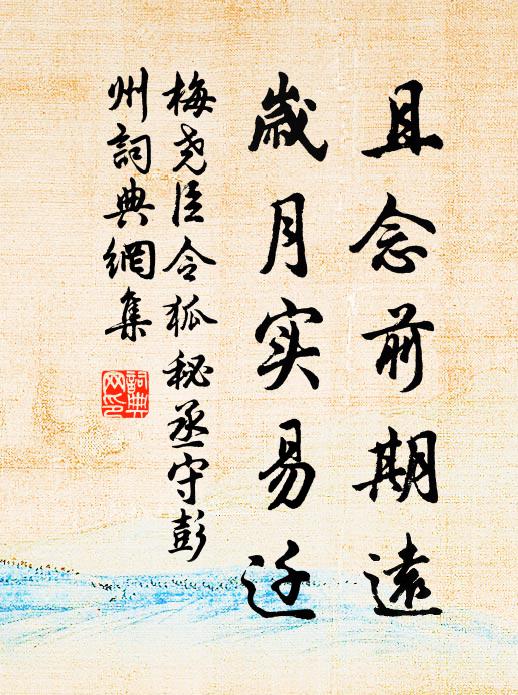 且念前期遠
歲月实易迁
梅尧臣令狐秘丞守彭
州詞典網集
詞典
网印